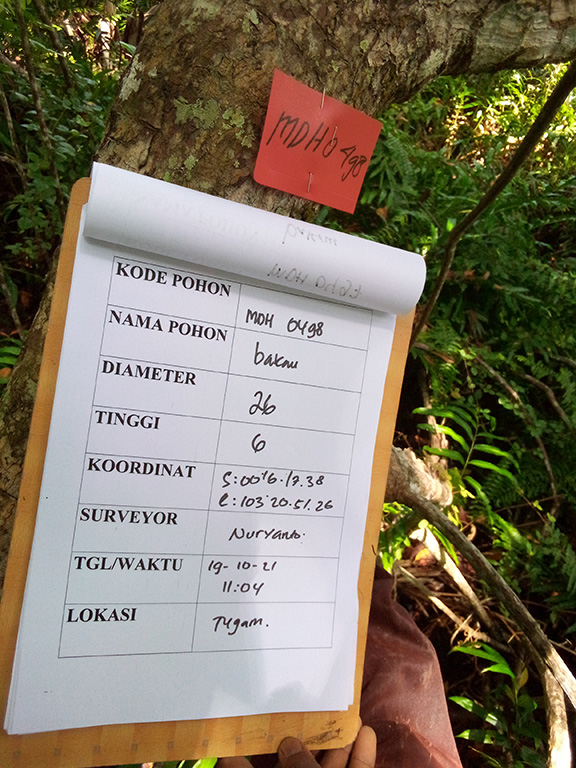 MDH 0498
KODE POHON
MDH 0498
NAMA POHON
bakau
DIAMETER
26
TINGGI
6
KOORDINAT
S:00°16.17.38
E:103°20.51.26
SURVEYOR
Nuryanto.
TGL/WAKTU
19-10-21
11:04
LOKASI